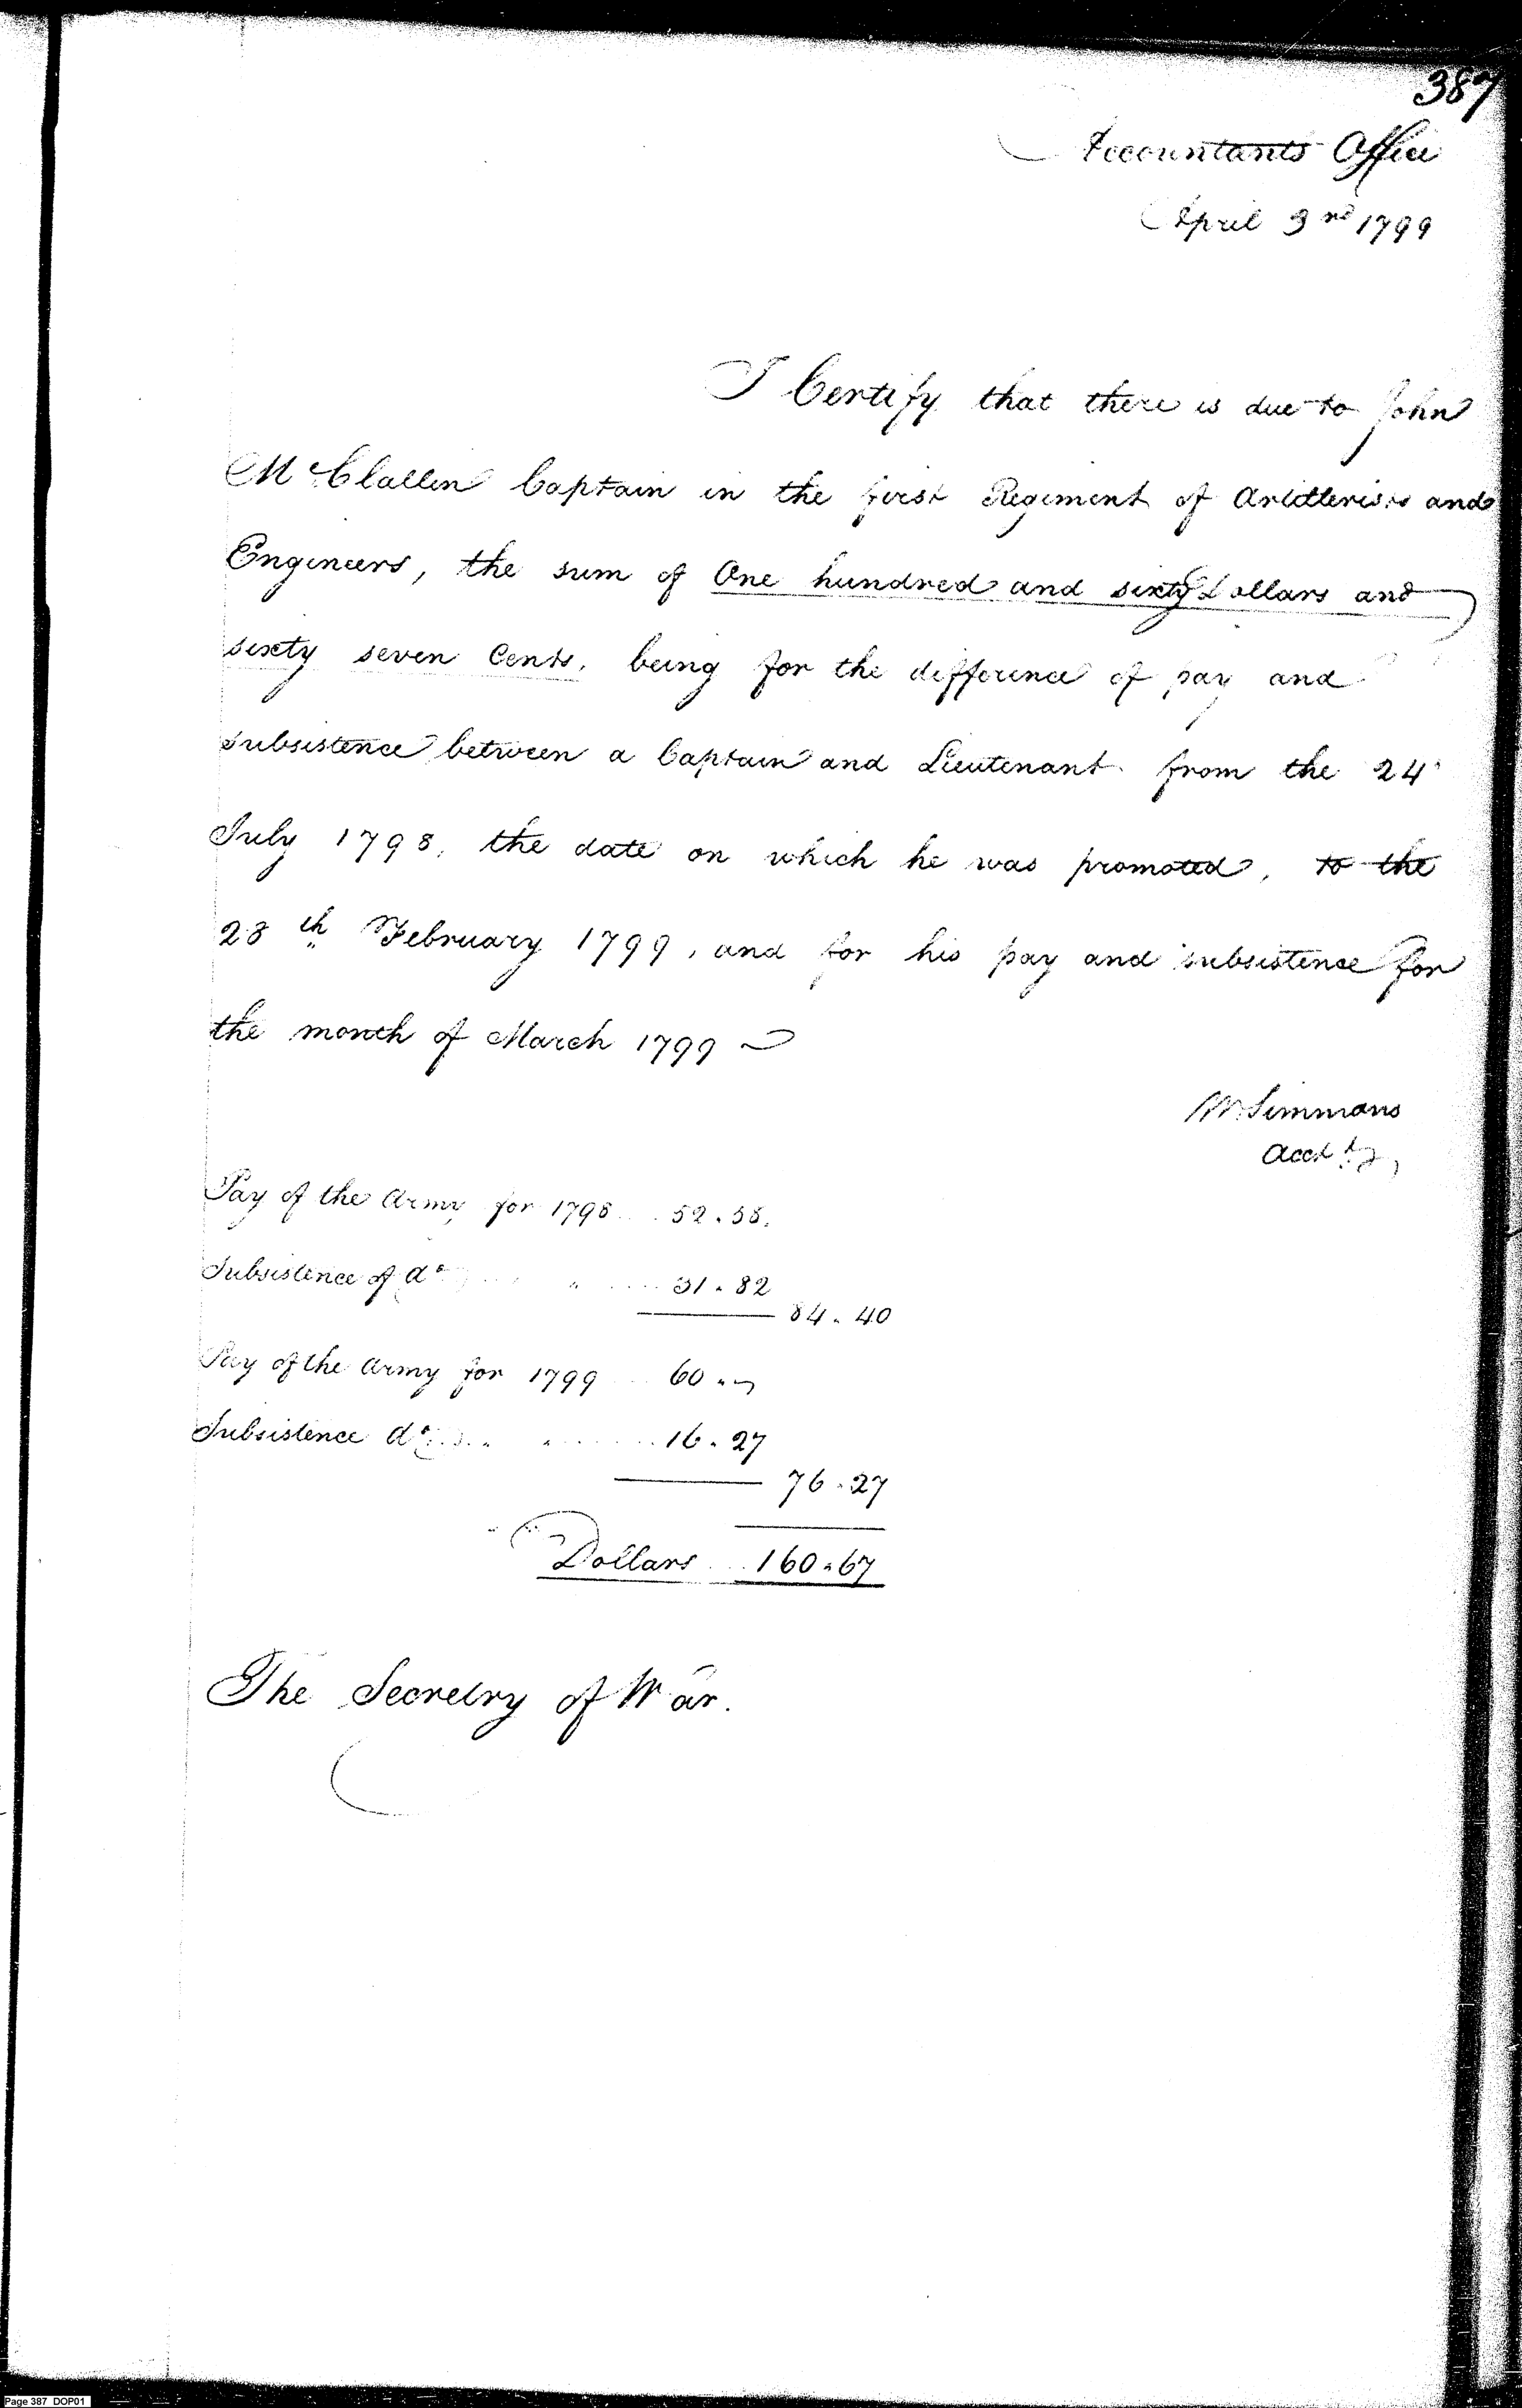 387
Accountants Office
April 3rd 1799
I Certify that there is due to John
McClallen Captain in the first Regiment of Artillerists and
Engineers, the sum of One hundred and sixty Dollars and
sixty seven Cents. being for the difference of pay and
subsistence between a Captain and Lieutenant from the 24
July 1798, the date on which he was promoted, to the
28th February 1799, and for his pay and subsistence for
the month of March 1799
W Simmons
Accts
Pay of the Army for 1798 .. 52.58.
Subsistence of do " 31.82
84.40
Pay of the Army for 1799 60 "
Subsistence do " " 16.27
76.27
Dollars 160.67
The Secretry of War.
Page 387 DOP01